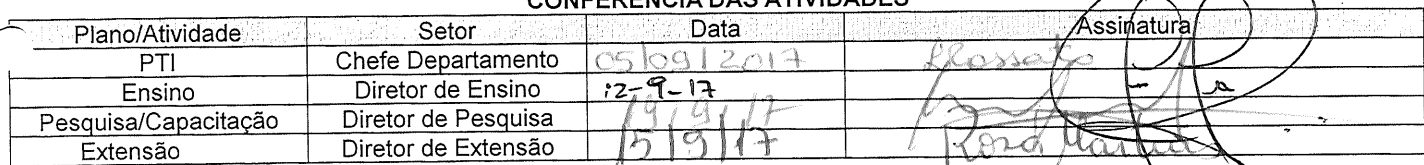 CONFERÊNCIA DAS ATIVIDADES
Plano/Atividade Setor Data Assinatura
PTI Chefe Departamento 05/09/2017
Ensino Diretor de Ensino 12-9-17
Pesquisa/Capacitação Diretor de Pesquisa 19/9/17
Extensão Diretor de Extensão 15/9/17